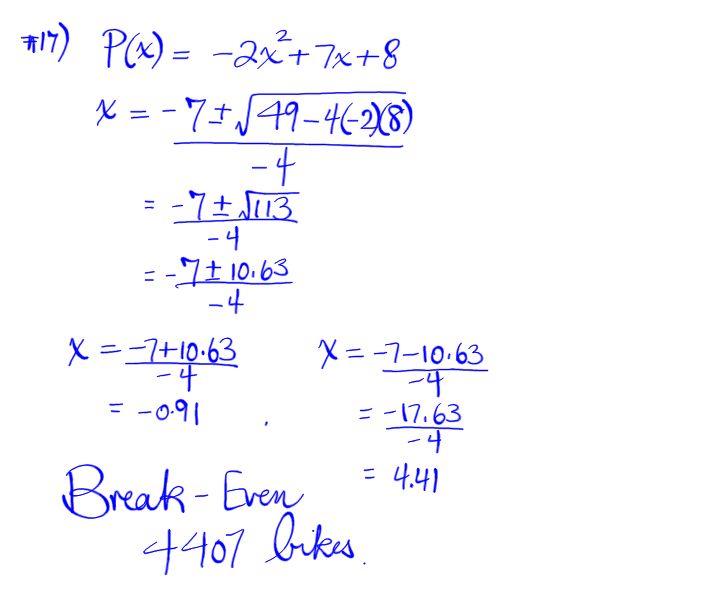 #17) P(x) = -2x²+7x+8
x = -7±√49-4(-2)(8)
-4
= -7±√113
-4
= -7±10.63
-4
x = -7+10.63
-4
= -0.91
x = -7-10.63
-4
= -17.63
-4
= 4.41
Break-Even
4407 bikes.